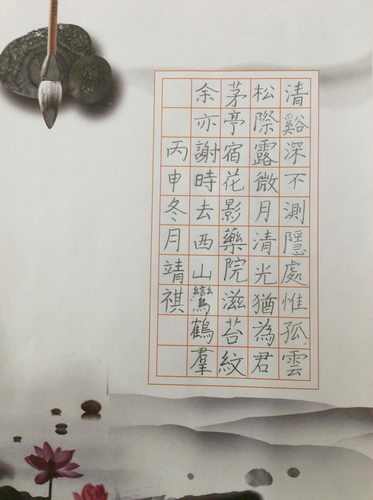 清谿深不測隱處惟孤雲
松際露微月清光猶為君
茅亭宿花影藥院滋苔紋
余亦謝時去西山鸞鶴羣
丙申冬月靖祺